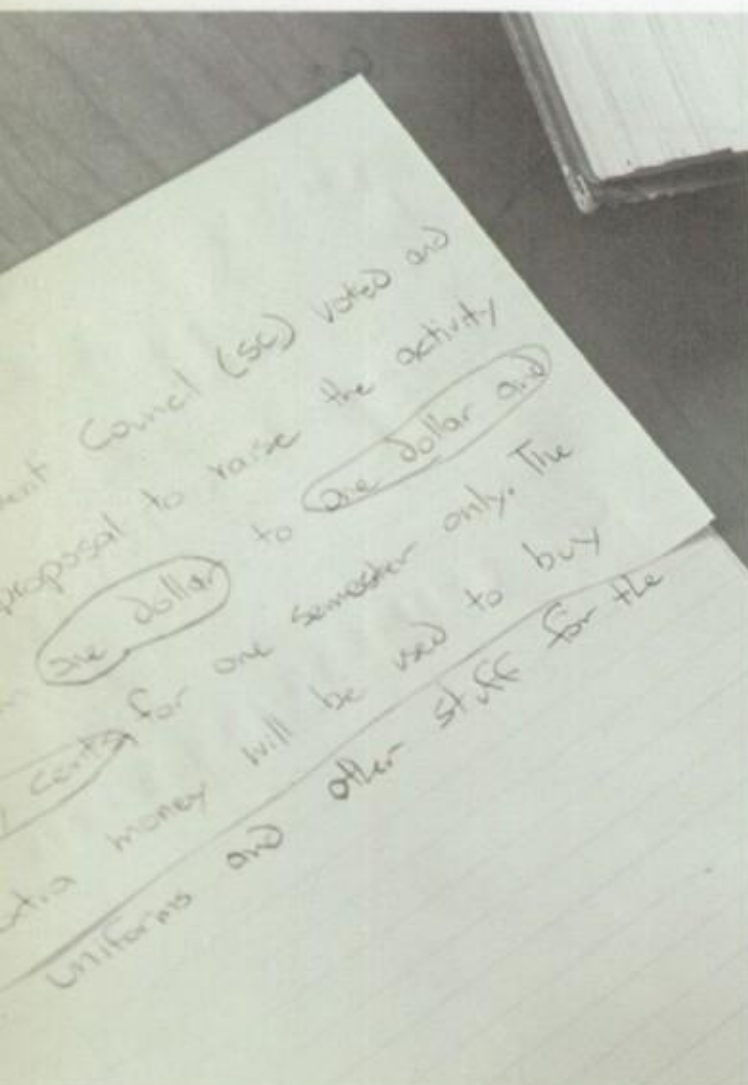 ent Council (SC) voted and
proposal to raise the activity
one dollar to one dollar and
cents for one semester only. The
extra money will be used to buy
uniforms and other stuff for the